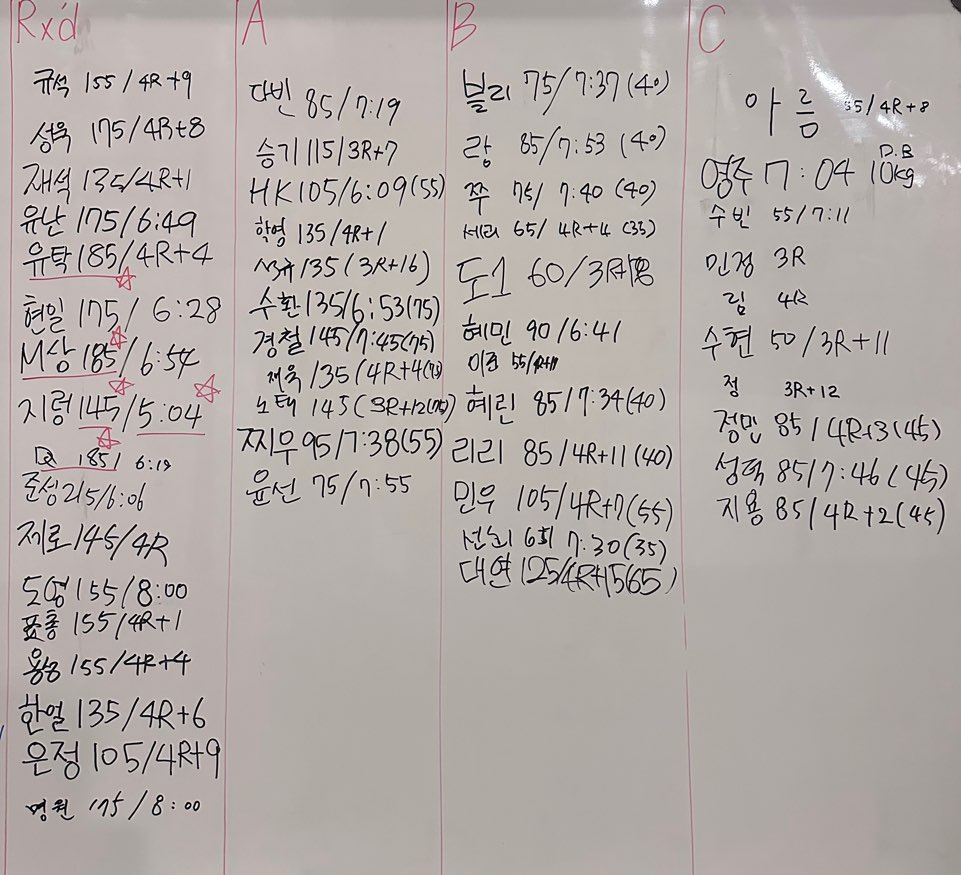 Rx'd
규석 155/4R+9
성욱 175/4R+8
재석 135/4R+1
유난 175/6:49
유탁 185/4R+4
현일 175/6:28
M상 185/6:54
지렁 145/5:04
185/6:19
준성 215/6:06
제로 145/4R
도영 155/8:00
표총 155/4R+1
용승 155/4R+4
한얼 135/4R+6
은정 105/4R+9
명원 175/8:00
A
다빈 85/7:19
승기 115/3R+7
HK 105/6:09(55)
학영 135/4R+1
석규 135(3R+16)
수환 135/6:53(75)
경철 145/7:45(75)
재욱 135(4R+4(75)
노태 145(3R+12(75)
찌우 95/7:38(55)
윤선 75/7:55
B
블리 75/7:37(40)
랑 85/7:53(40)
쭈 75/7:40(40)
세리 65/4R+4(35)
도1 60/3R+18
혜민 90/6:41
이쥰 55/4R+11
혜린 85/7:34(40)
리리 85/4R+11(40)
민우 105/4R+7(55)
선희 65/7:30(35)
대연 125/4R+1565)
C
아름 55/4R+8
영주 7:04 10kg D.B
수빈 55/7:11
민정 3R
림 4R
수현 50/3R+11
정 3R+12
정민 85/4R+3(45)
성덕 85/7:46(45)
지용 85/4R+2(45)